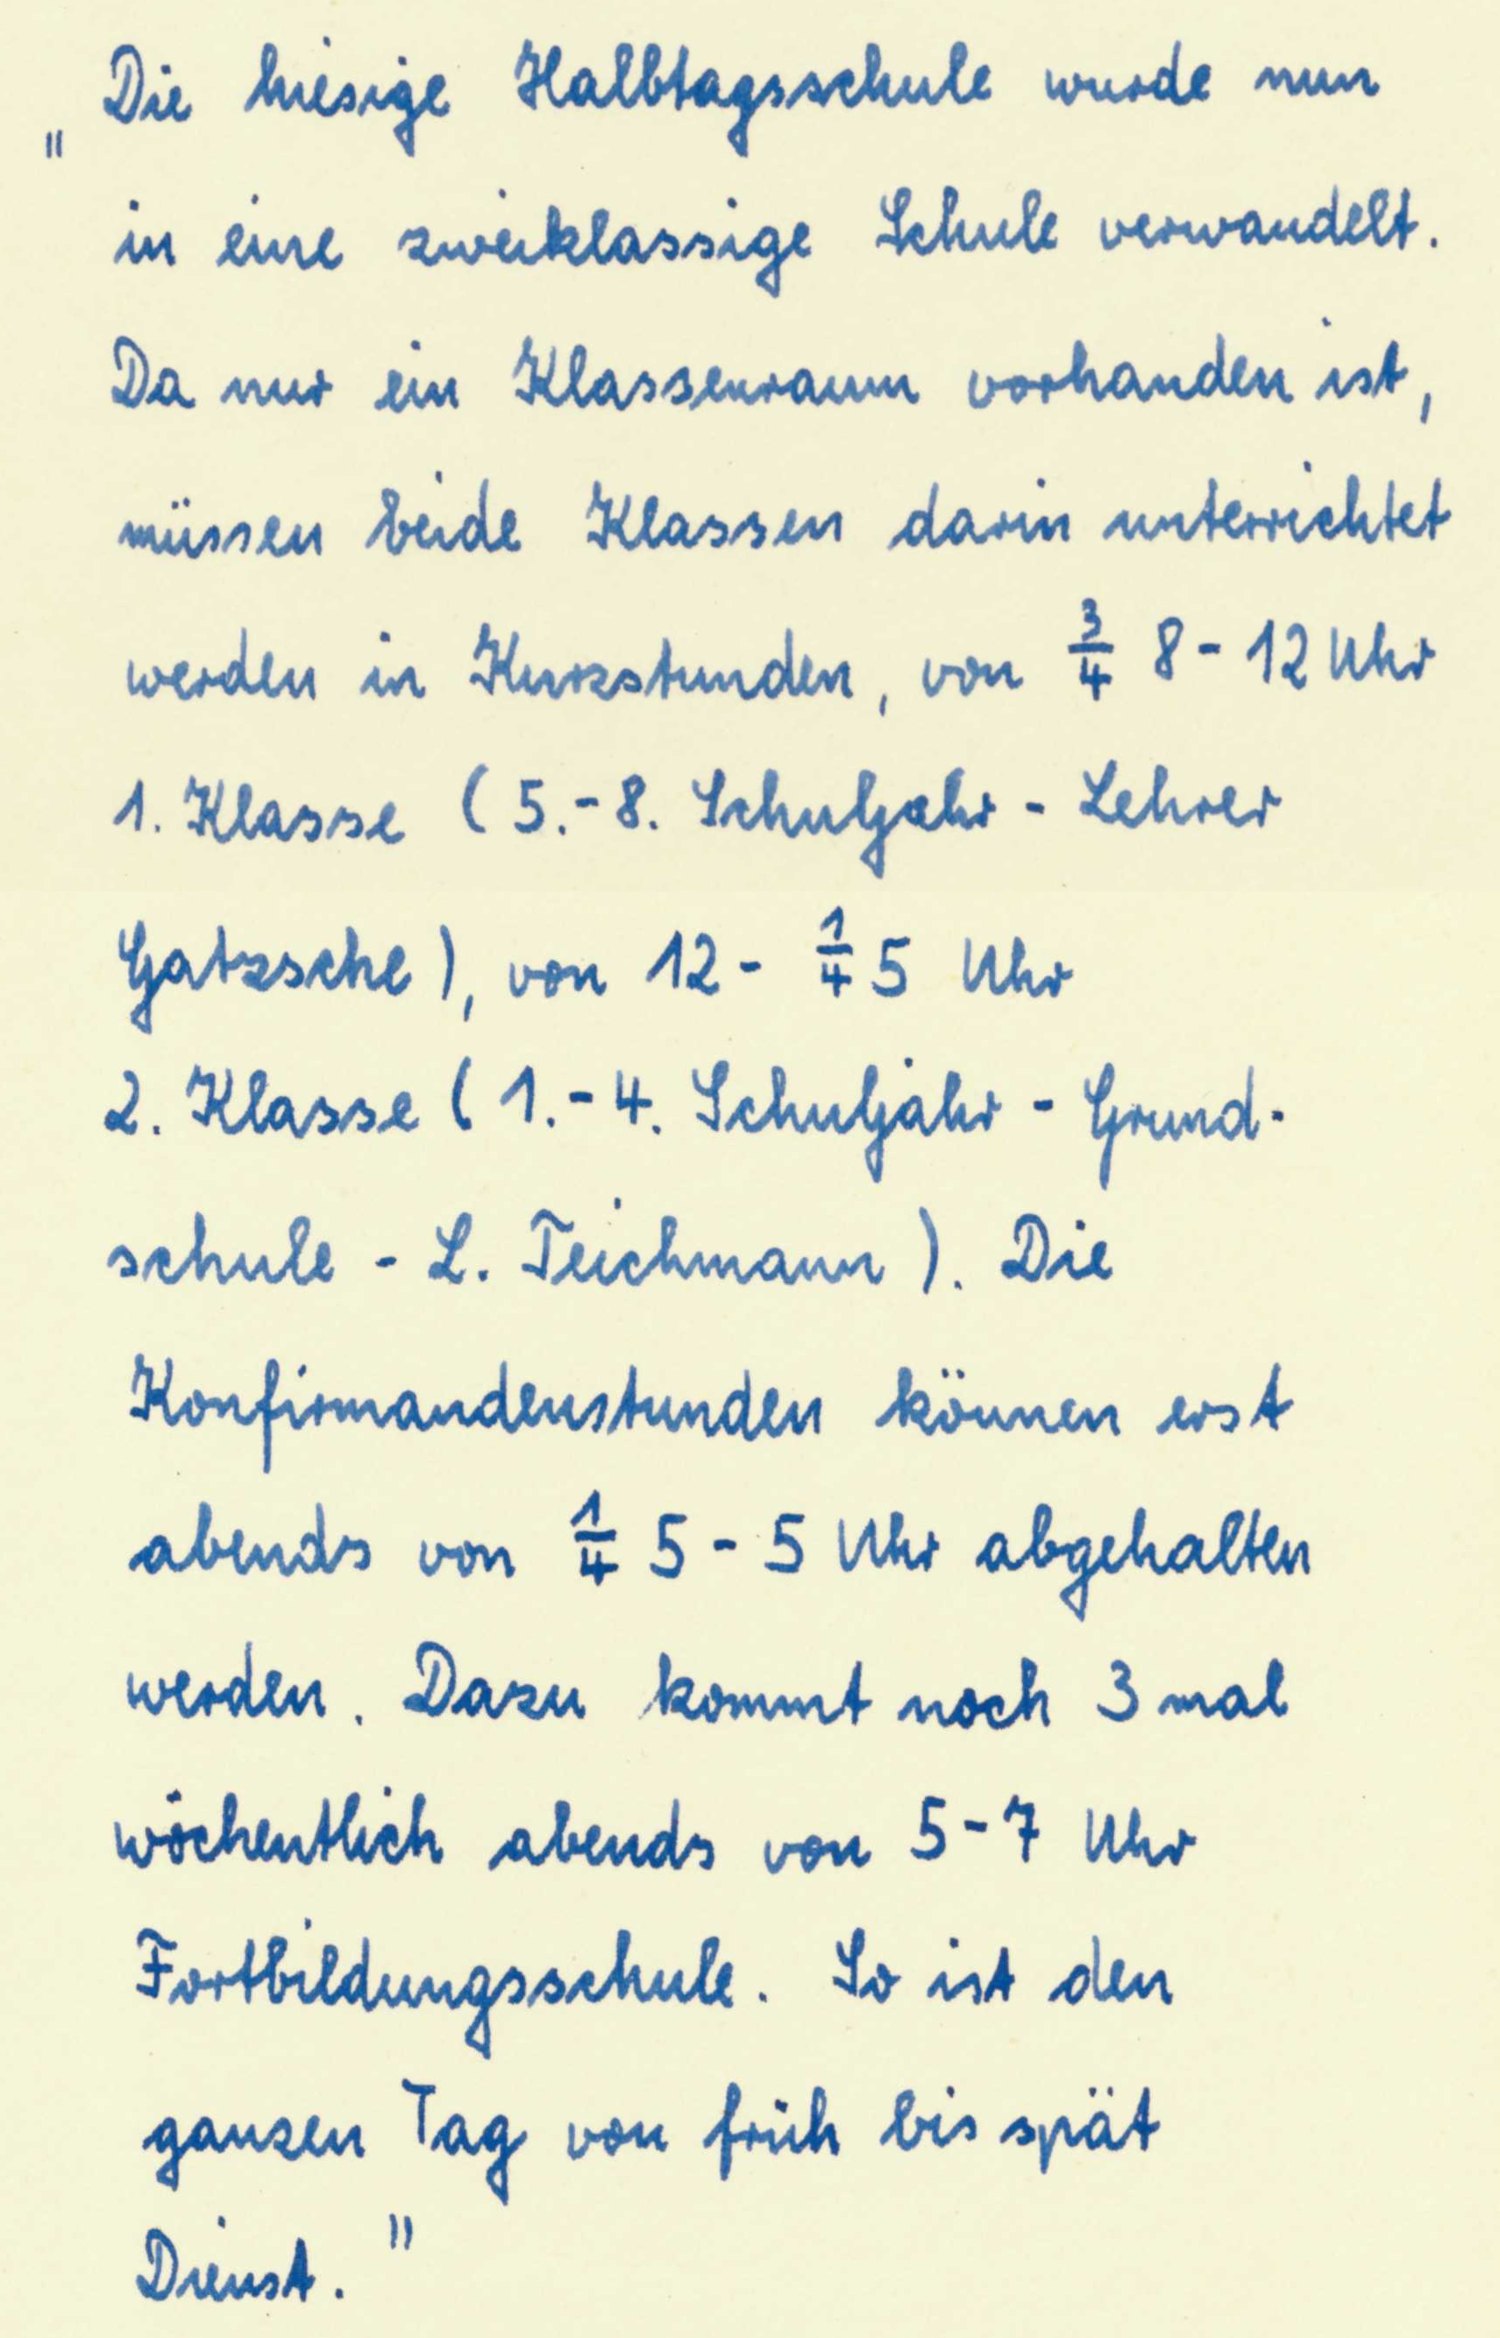 „Die hiesige Halbtagsschule wurde nun
in eine zweiklassige Schule verwandelt.
Da nur ein Klassenraum vorhanden ist,
müssen beide Klassen darin unterrichtet
werden in Kurzstunden, von ¾ 8 - 12 Uhr
1. Klasse (5.-8. Schuljahr - Lehrer
Gatzsche), von 12 - ¼ 5 Uhr
2. Klasse (1.-4. Schuljahr - Grund-
schule - L. Teichmann). Die
Konfirmandenstunden können erst
abends von ¼ 5 - 5 Uhr abgehalten
werden. Dazu kommt noch 3 mal
wöchentlich abends von 5-7 Uhr
Fortbildungsschule. So ist den
ganzen Tag von früh bis spät
Dienst."